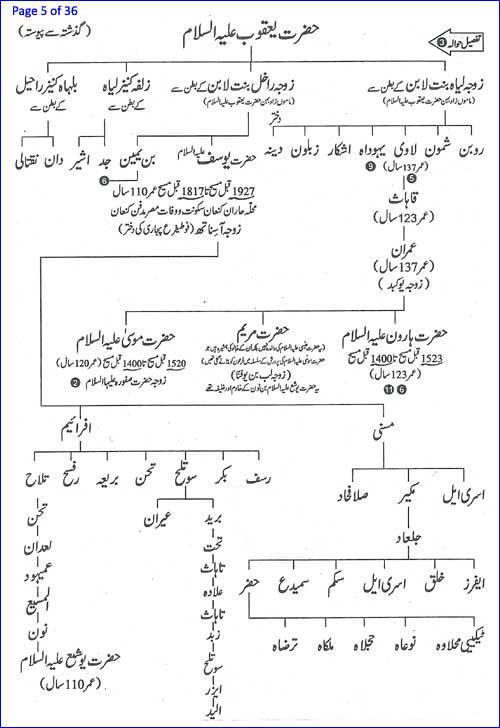 Page 5 of 36
تفصیل حوالہ ❸
حضرت یعقوب علیہ السلام
(گذشتہ سے پیوستہ)
زوجہ لیاہ بنت لابن کے بطن سے
(ماموں زاد بہن حضرت یعقوب علیہ السلام)
زوجہ راخل بنت لابن کے بطن سے
(ماموں زاد بہن حضرت یعقوب علیہ السلام)
زلفہ کنیز لیاہ
کے بطن سے
بلہاہ کنیز راحیل
کے بطن سے
دختر
روبن شمون لاوی یہوداہ اشکار زبلون دینہ
(عمر 137 سال) ❾
حضرت یوسف علیہ السلام بن یمین
❻
جد اشیر
دان نفتالی
1927 قبل مسیح تا 1817 قبل مسیح عمر 110 سال
محلہ حاران کنعان سکونت و وفات مصر مدفن کنعان
زوجہ آسناتھ (فوطیفرع پجاری کی دختر)
❺
قاہاث
(عمر 123 سال)
عمران
(عمر 137 سال)
(زوجہ یوکبد)
حضرت ہارون علیہ السلام
1523 قبل مسیح تا 1400 قبل مسیح
(عمر 123 سال)
❻ ⓫
حضرت مریم
(زوجہ لب بن یوفتا)
یہ حضرت یوشع علیہ السلام بن نون کے خادم اور خلیفہ تھے
حضرت موسیٰ علیہ السلام
1520 قبل مسیح تا 1400 قبل مسیح (عمر 120 سال)
زوجہ حضرت صفورہ علیہا السلام ❷
منسی
اسری ایل مکیر صلافحاد
جلعاد
ایفرز خلق اسری ایل سکم سمیدع حضر
ٹیکیبی محلاوہ نوعاہ حجلاہ ملکاہ ترضاہ
افرائیم
رسف بکر سوتلح تحن بریعہ رفسح تلاح
برید عیران
تحت
تاہاث
علادہ
تاہاث
زبد
سوتلح
ایزر
الید
تحن
لعدان
عمیہود
المسیع
نون
حضرت یوشع علیہ السلام
(عمر 110 سال)